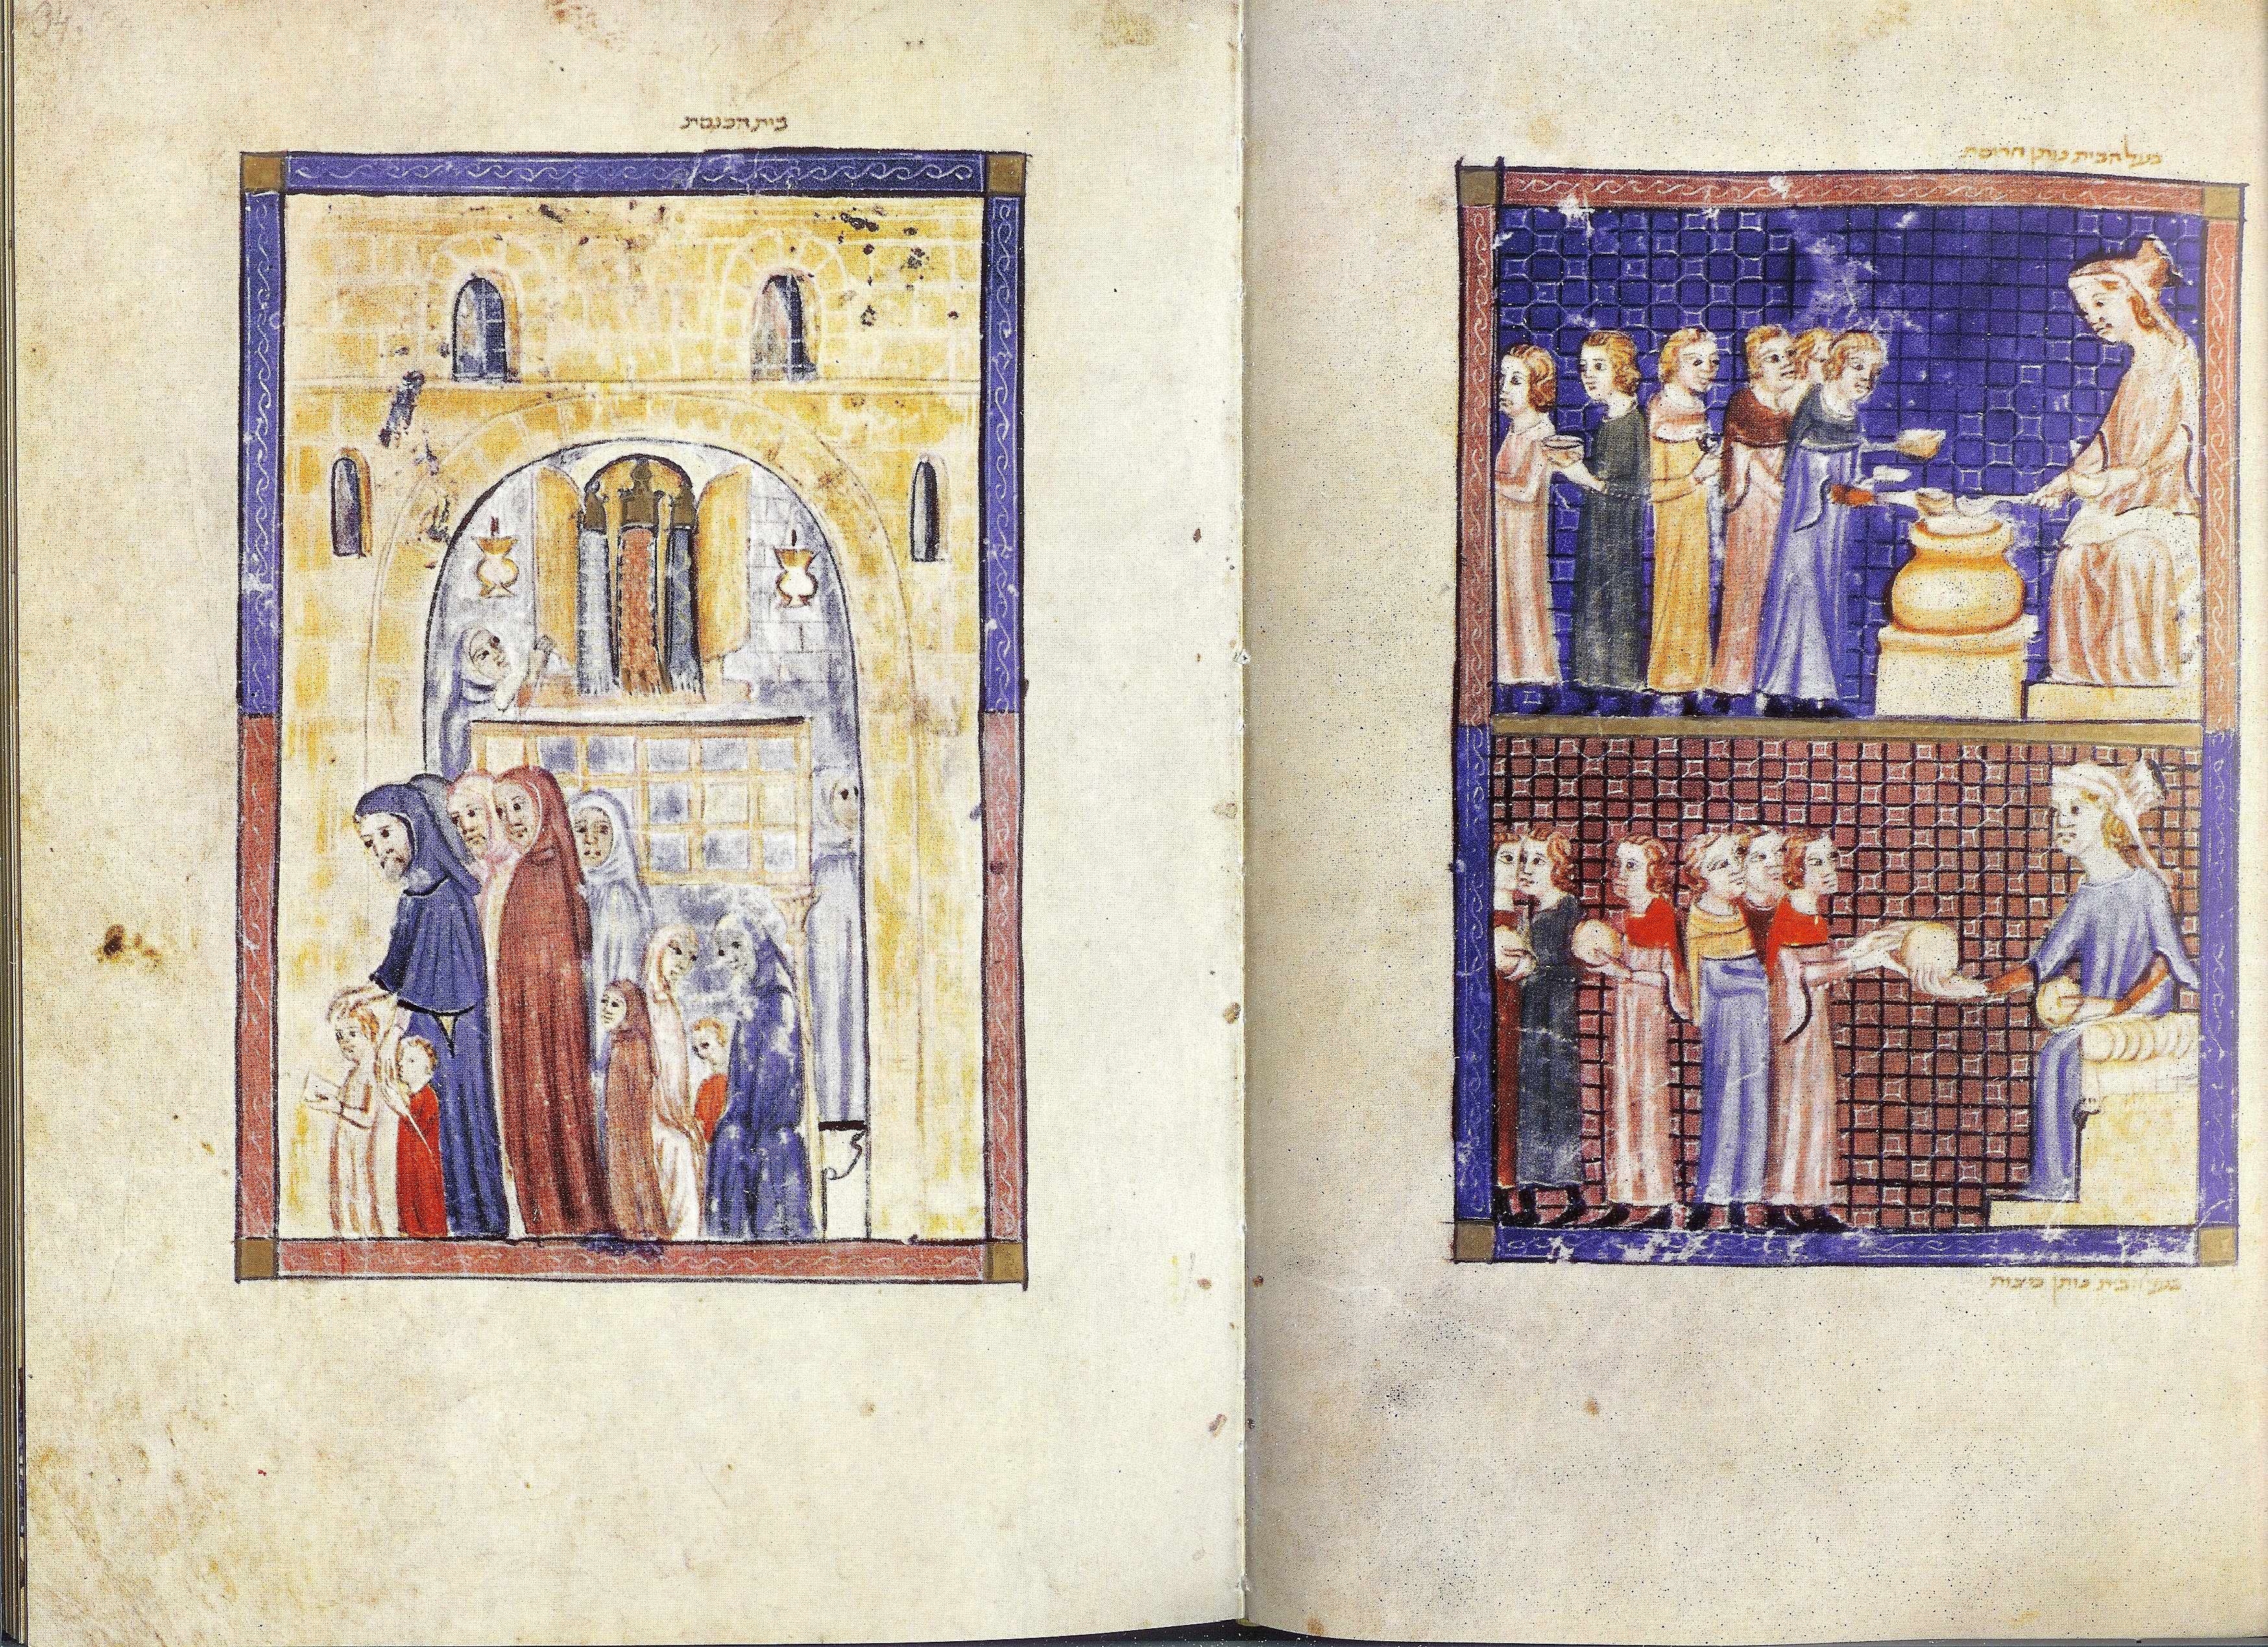 בעל הבית נותן חרוסת
בעל הבית נותן מצות
34
בית הכנסת